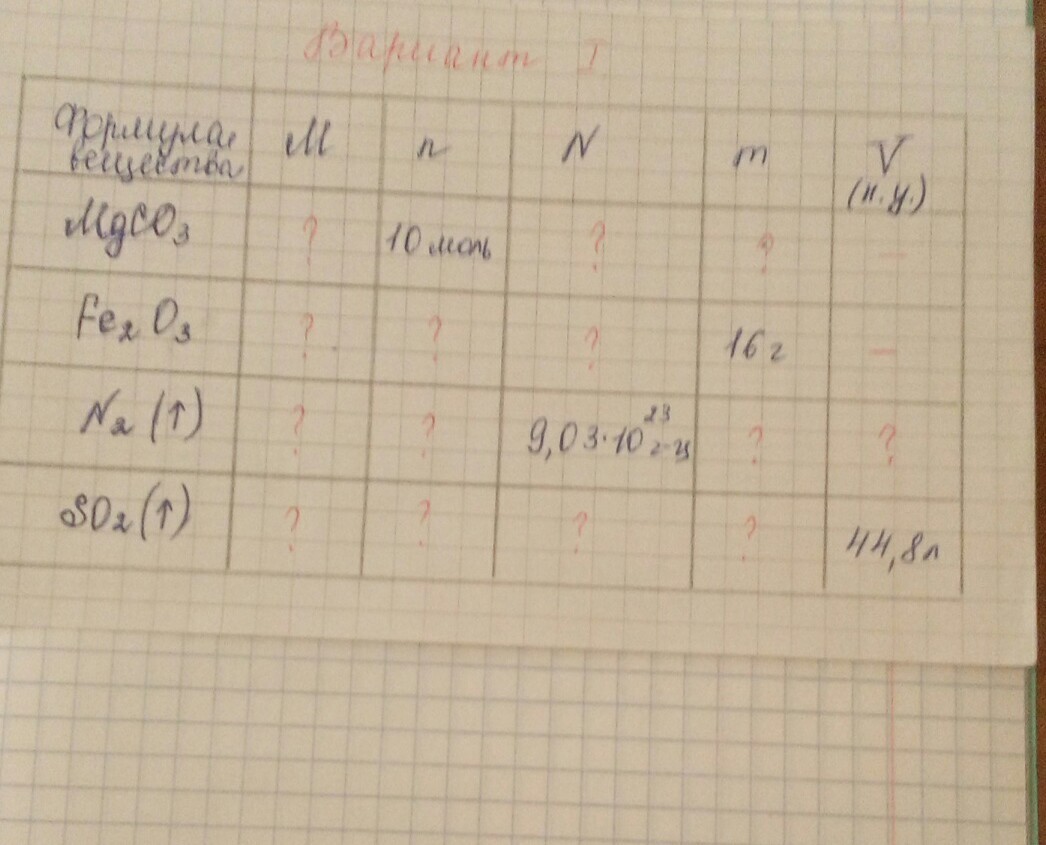 Вариант I
Формула вещества M n N m V (н.у.)
MgCO₃ ? 10 моль ? ? –
Fe₂O₃ ? ? ? 16 г –
N₂ (↑) ? ? 9,03·10²³ г-ч ? ?
SO₂ (↑) ? ? ? ? 44,8 л